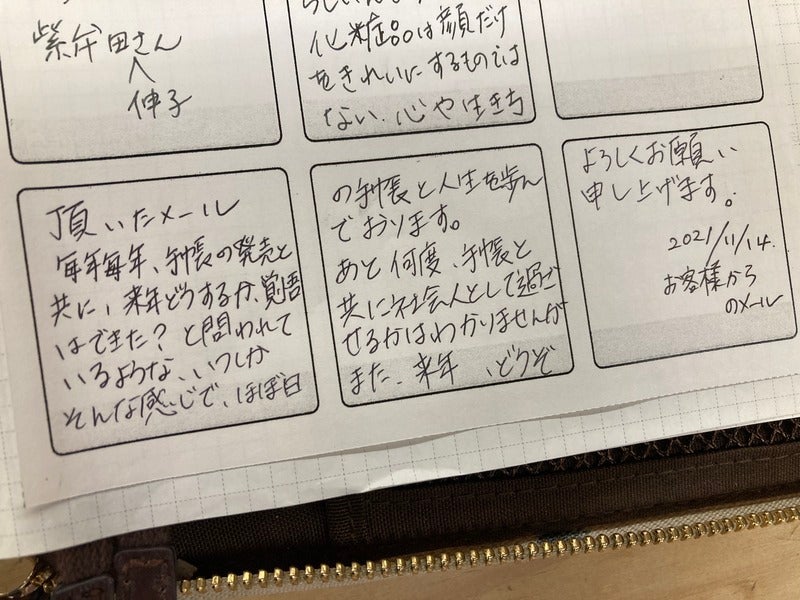 紫牟田さん
伸子
化粧品は顔だけ
をきれいにするものでは
ない、心や生き方
頂いたメール
毎年毎年、手帳の発売と
共に、来年どうするか、覚悟
はできた？と問われて
いるような、いつしか
そんな感じで、ほぼ日
の手帳と人生を歩ん
でおります。
あと何度、手帳と
共に社会人として過ご
せるかはわかりませんが
また、来年、どうぞ
よろしくお願い
申し上げます。
2021/11/14.
お客様から
のメール